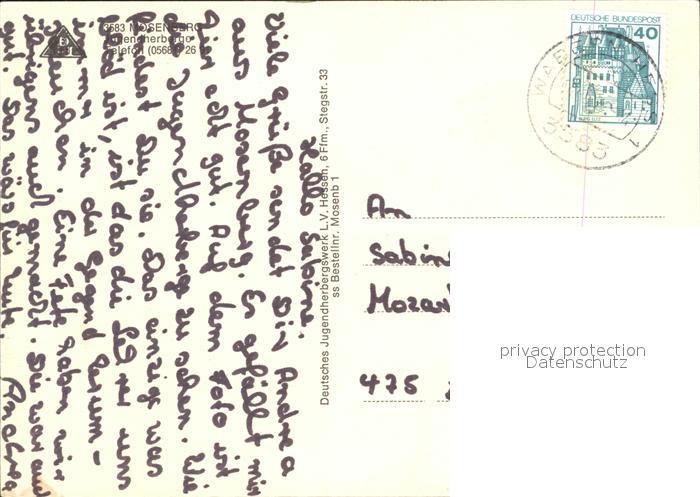 3583 MOSENBERG
Jugendherberge
Telefon (05681) 26
Hallo Sabine.
Viele Grüße sendet Dir Andrea
aus Mosenburg. Es gefällt mir
hier sehr gut. Auf dem Foto ist
die Jugendherberg zu sehen. Wie
findest Du sie. Das einzige was
blöd ist, ist das die Lehrer uns
immer in der Gegend herum-
Eine Fete haben wir
übrigens auch gemacht. Die war auch
gut. Das wärs für heute.
Andrea
Deutsches Jugendherbergswerk L.V. Hessen, 6 Ffm., Stegstr. 33
ss Bestellnr. Mosenb 1
DEUTSCHE BUNDESPOST
40
3583
1
An
Sabine
Mozart
475
privacy protection
Datenschutz